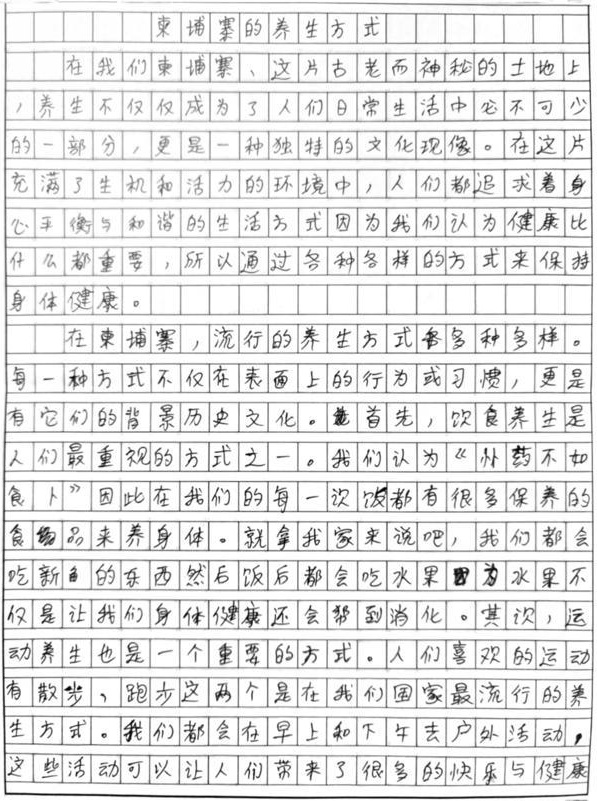 柬埔寨的养生方式
在我们柬埔寨、这片古老而神秘的土地上
，养生不仅仅成为了人们日常生活中必不可少
的一部分，更是一种独特的文化现像。在这片
充满了生机和活力的环境中，人们都追求着身
心平衡与和谐的生活方式因为我们认为健康比
什么都重要，所以通过各种各样的方式来保持
身体健康。
在柬埔寨，流行的养生方式多种多样。
每一种方式不仅在表面上的行为或习惯，更是
有它们的背景历史文化。首先，饮食养生是
人们最重视的方式之一。我们认为“补药不如
食卜”因此在我们的每一次饭都有很多保养的
食品来养身体。就拿我家来说吧，我们都会
吃新的东西然后饭后都会吃水果因为水果不
仅是让我们身体健康还会帮到消化。其次，运
动养生也是一个重要的方式。人们喜欢的运动
有散步、跑步这两个是在我们国家最流行的养
生方式。我们都会在早上和下午去户外活动，
这些活动可以让人们带来了很多的快乐与健康